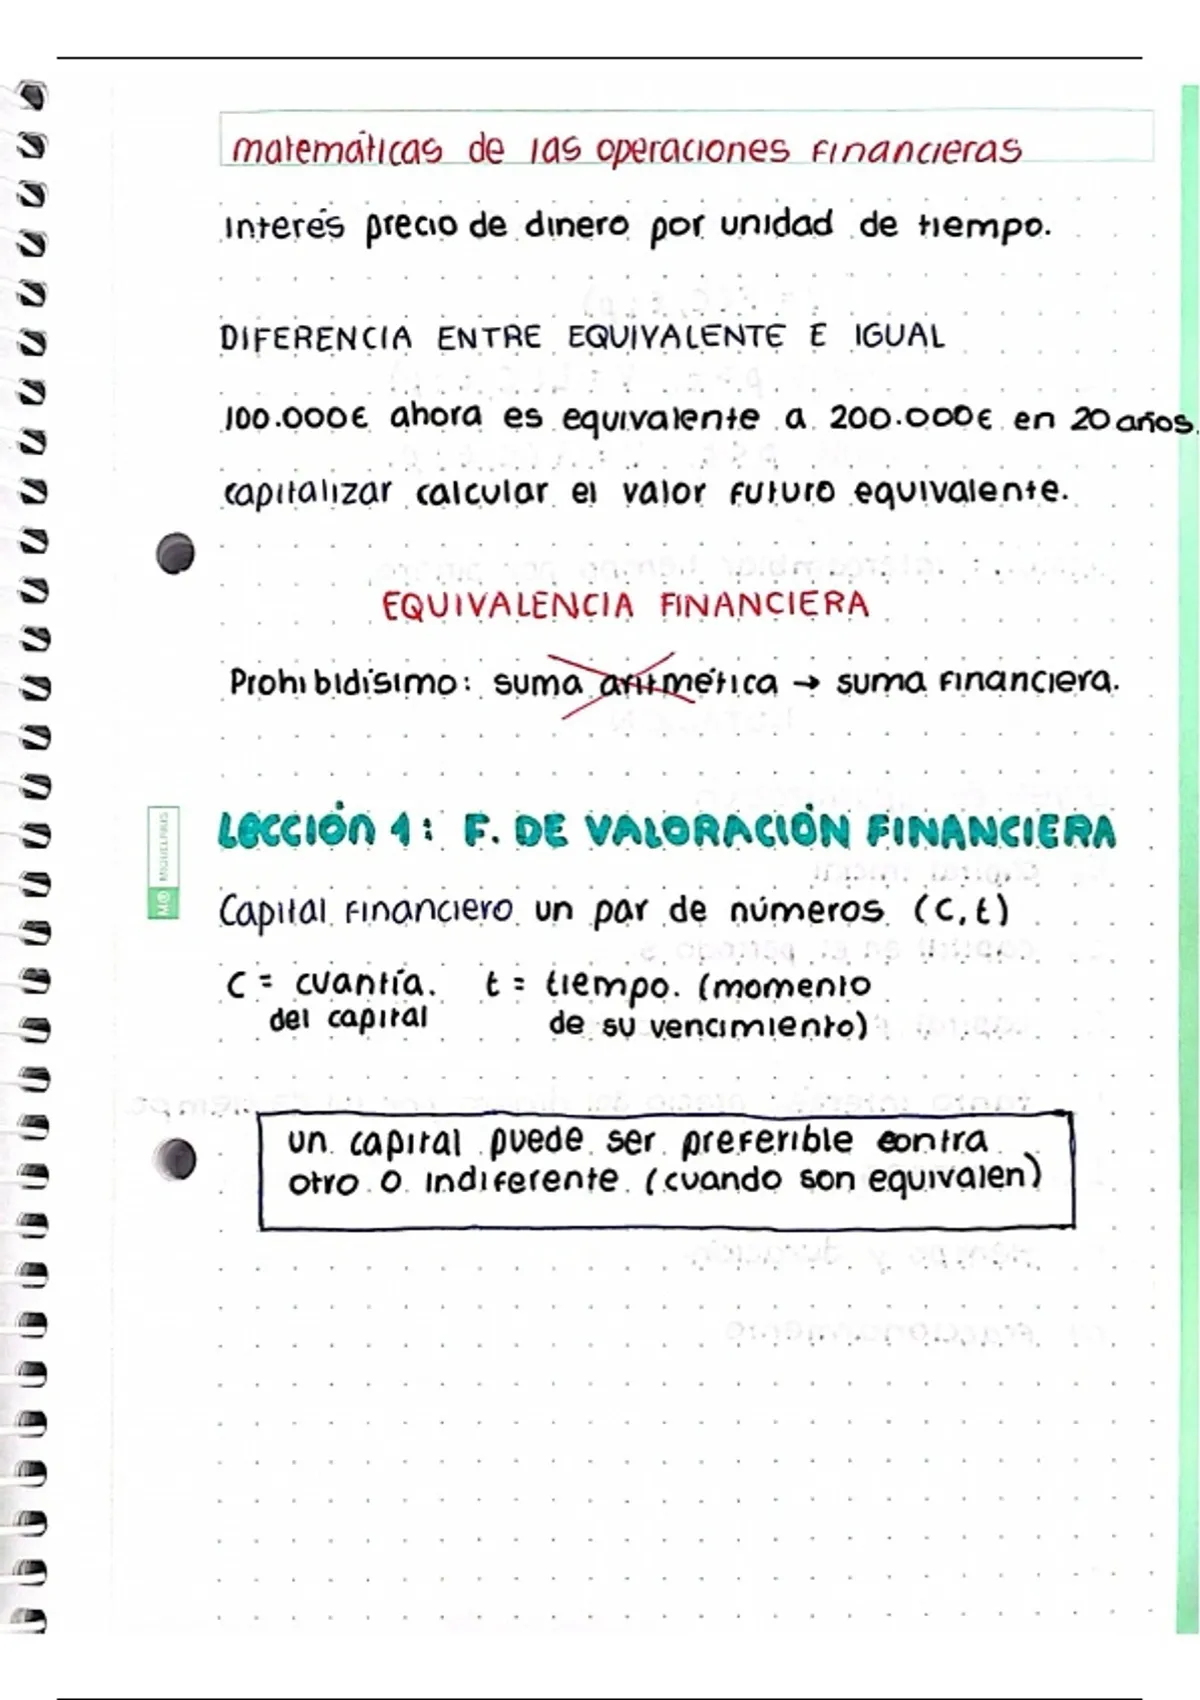 matemáticas de las operaciones financieras
Interés precio de dinero por unidad de tiempo.
DIFERENCIA ENTRE EQUIVALENTE E IGUAL
100.000€ ahora es equivalente a 200.000€ en 20 años.
capitalizar calcular el valor futuro equivalente.
EQUIVALENCIA FINANCIERA
Prohibidísimo: suma aritmética → suma financiera.
LECCIÓN 1: F. DE VALORACIÓN FINANCIERA
MIQUELRIUS
Capital financiero un par de números (C, t)
C = cuantía. t = tiempo. (momento
del capital de su vencimiento)
un capital puede ser preferible contra
otro o indiferente (cuando son equivalen)